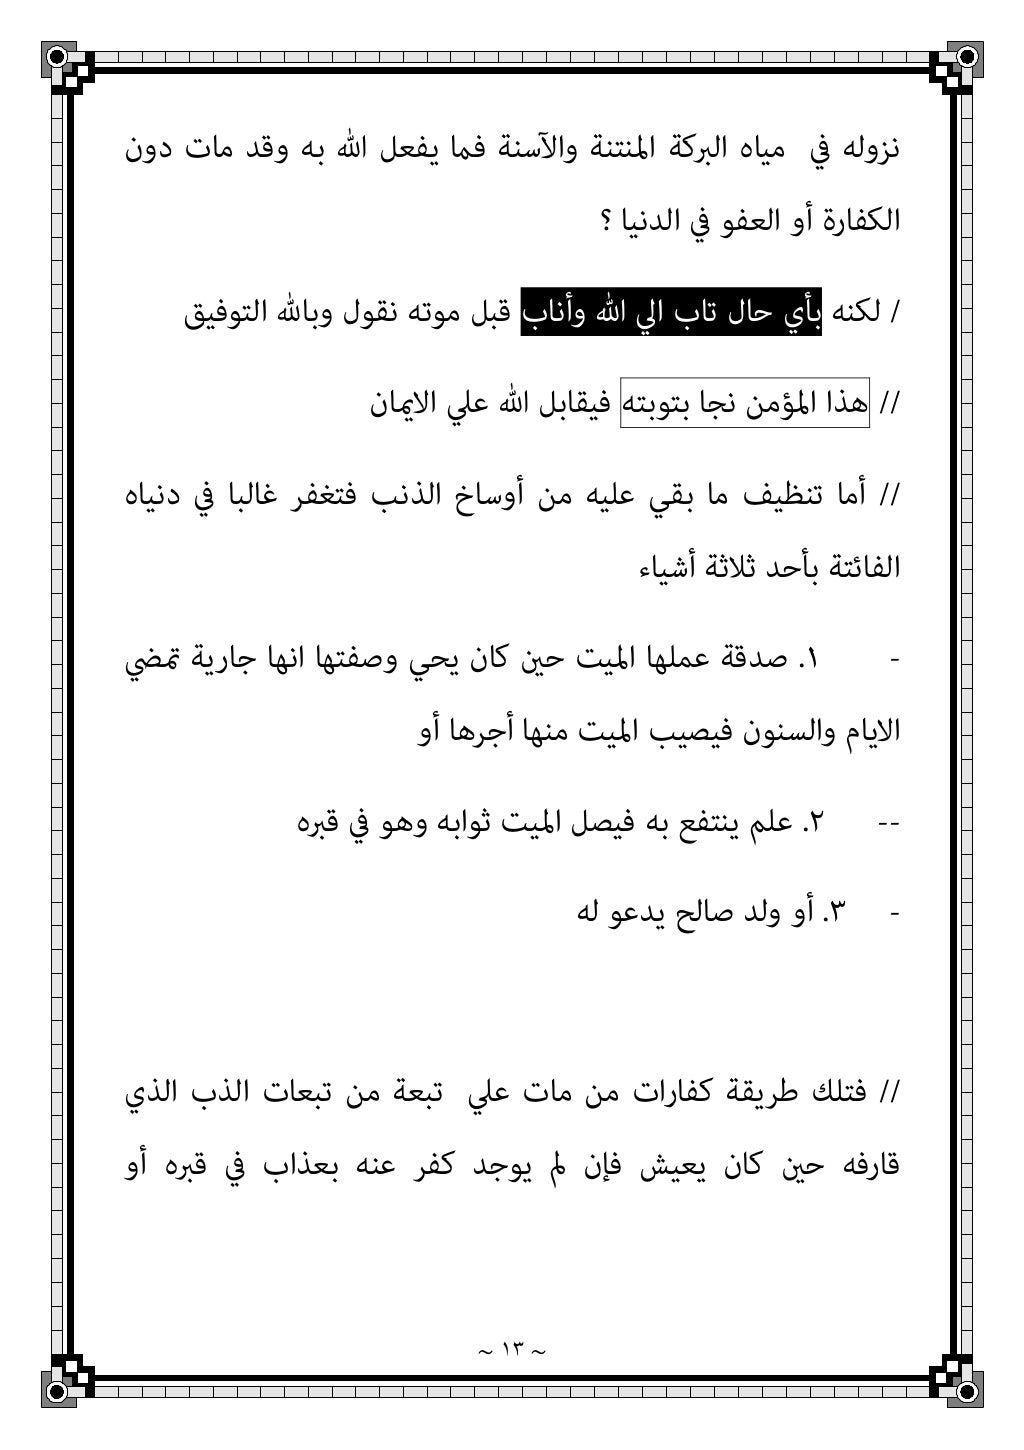 نزوله في  مياه البركة المنتنة والآسنة فما يفعل الله به وقد مات دون
الكفارة أو العفو في الدنيا ؟
/ لكنه بأي حال تاب الي الله وأناب قبل موته نقول وبالله التوفيق
// هذا المؤمن نجا بتوبته فيقابل الله علي الايمان
// أما تنظيف ما بقي عليه من أوساخ الذنب فتغفر غالبا في دنياه
الفائتة بأحد ثلاثة أشياء
- ١. صدقة عملها الميت حين كان يحي وصفتها انها جارية تمضي
الايام والسنون فيصيب الميت منها أجرها أو
-- ٢. علم ينتفع به فيصل الميت ثوابه وهو في قبره
- ٣. أو ولد صالح يدعو له
// فتلك طريقة كفارات من مات علي  تبعة من تبعات الذب الذي
قارفه حين كان يعيش فإن لم يوجد كفر عنه بعذاب في قبره أو
~ ١٣ ~